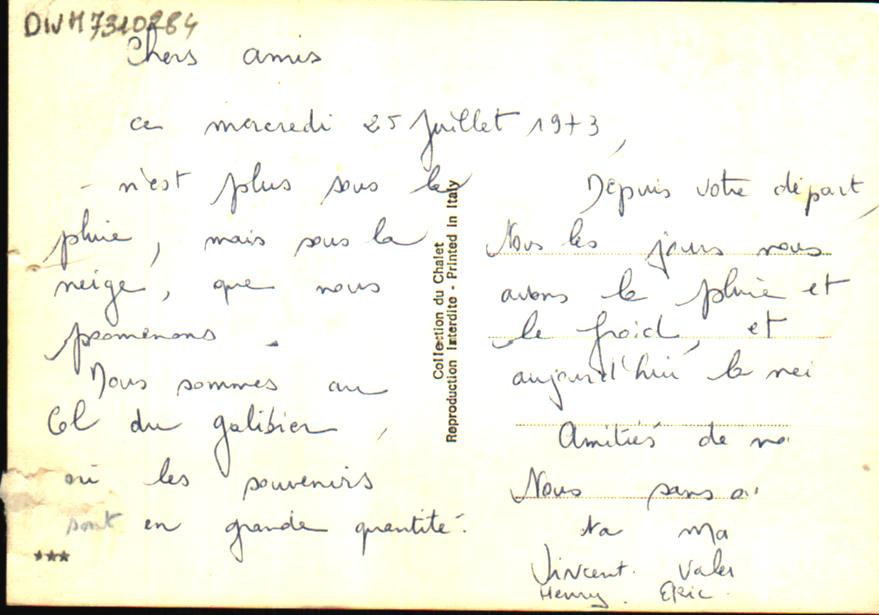 DWM7310284
Chers amis
ce mercredi 25 Juillet 1973,
- n'est plus sous la
pluie, mais sous la
neige, que nous
promenons.
Nous sommes au
Col du galibier,
où les souvenirs
sont en grande quantité.
***
Collection du Chalet
Reproduction Interdite - Printed in Italy
Depuis votre départ,
les jours nous
avons la pluie et
le froid, et
aujourd'hui la nei
Amitiés de no
Nous
Ta Ma
Vincent. Valer
Henry. Eric.